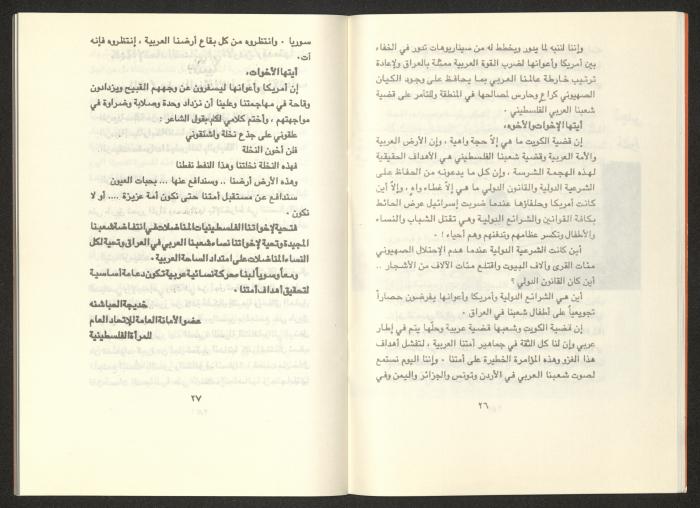 وإننا لننبه لما يدور ويخطط له من سيناريوهات تدور في الخفاء
بين أمريكا وأعوانها لضرب القوة العربية ممثلة بالعراق ولإعادة
ترتيب خارطة عالمنا العربي بما يحافظ على وجود الكيان
الصهيوني كراع وحارس لمصالحها في المنطقة وللتآمر على قضية
شعبنا العربي الفلسطيني .
أيتها الإخوات والأخوه،
إن قضية الكويت ما هي إلاّ حجة واهية ، وإن الأرض العربية
والأمة العربية وقضية شعبنا الفلسطيني هي الأهداف الحقيقية
لهذه الهجمة الشرسة ، وإن كل ما يدعونه من الحفاظ على
الشرعية الدولية والقانون الدولي ما هي إلاّ غطاء واهٍ ، وإلاّ أين
كانت أمريكا وحلفاؤها عندما ضربت إسرائيل عرض الحائط
بكافة القوانين والشرائع الدولية وهي تقتل الشباب والنساء
والأطفال وتكسر عظامهم وتدفنهم وهم أحياء ! .
أين كانت الشرعية الدولية عندما هدم الإحتلال الصهيوني
مئات القرى وآلاف البيوت واقتلع مئات الآلاف من الأشجار ..
أين كان القانون الدولي ؟
أين هي الشرائع الدولية وأمريكا وأعوانها يفرضون حصاراً
تجويعياً على أطفال شعبنا في العراق .
إن قضية الكويت وشعبها قضية عربية وحلّها يتم في إطار
عربي وإن لنا كل الثقة في جماهير أمتنا العربية ، لتفشل أهداف
هذا الغزو وهذه المؤامرة الخطيرة على أمتنا . وإننا اليوم نستمع
لصوت شعبنا العربي في الأردن وتونس والجزائر واليمن وفي
٢٦
سوريا . وانتظروه من كل بقاع أرضنا العربية ، إنتظروه فإنه
آت.
أيتها الأخوات،
إن أمريكا وأعوانها ليسفرون عن وجههم القبيح ويزدادون
وقاحة في مهاجمتنا وعلينا أن نزداد وحدة وصلابة وضراوة في
مواجهتهم ، وأختم كلامي لكم بقول الشاعر :
علقوني على جذع نخلة واشنقوني
فلن أخون النخلة
فهذه النخلة نخلتنا وهذا النفط نفطنا
وهذه الأرض أرضنا .. وسندافع عنها ... بحبات العيون
سندافع عن مستقبل أمتنا حتى نكون أمة عزيزة .... أو لا
نكون .
فتحية لإخواتنا الفلسطينيات المناضلات في انتفاضة شعبنا
المجيدة وتحية لإخواتنا نساء شعبنا العربي في العراق وتحية لكل
النساء المناضلات على امتداد الساحة العربية .
ومعاً وسوياً لبناء حركة نسائية عربية تكون دعامة أساسية
لتحقيق أهداف أمتنا .
خديجة الحباشنه
عضو الأمانة العامة للإتحاد العام
للمرأة الفلسطينية
٢٧